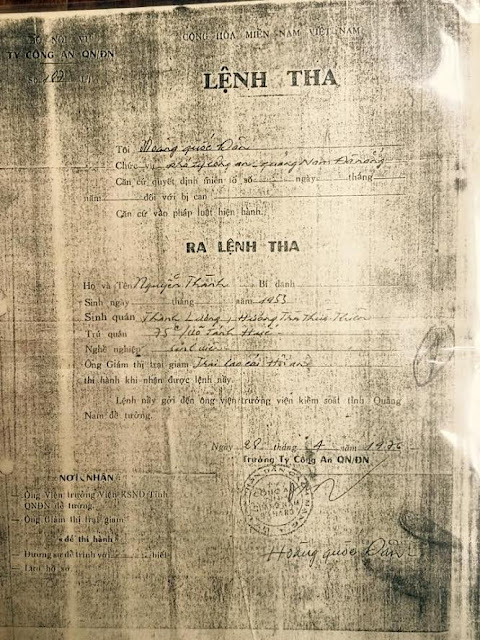 BỘ NỘI VỤ
TY CÔNG AN QN/DN
CỘNG HÒA MIỀN NAM VIỆT NAM
LỆNH THA
Tôi Hoàng Quốc Dân
Chức vụ phó ty công an Quảng Nam Đà Nẵng
Căn cứ quyết định miễn tố số ngày tháng
năm đối với bị can
Căn cứ văn pháp luật hiện hành.
RA LỆNH THA
Họ và Tên Nguyễn Thành Bí danh
Sinh ngày tháng năm 1953
Sinh quán Thanh Lương, Hương Trà Thừa Thiên
Trú quán
Nghề nghiệp Sinh viên
Ông Giám thị trại giam Trại lao cải Hội an
thi hành khi nhận được lệnh nầy.
Lệnh nầy gởi đến ông viện trưởng viện kiểm soát tỉnh Quảng
Nam để tường.
Ngày 28 tháng 4 năm 1976
Trưởng Ty Công An QN/DN
NƠI NHẬN
— Ông Viện trưởng Viện KSND Tỉnh
QNDN để tường.
— Ông Giám thị trại giam
«để thi hành»
— Đương sự để trình với biết
— Lưu hồ sơ.
Hoàng Quốc Dân